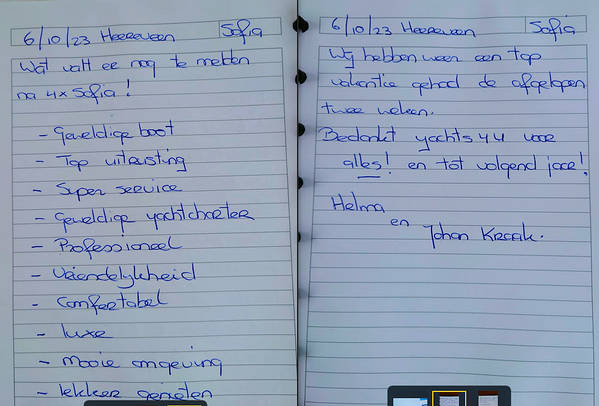 6/10/23 Heereveen Sofia
Wat valt er nog te melden
na 4x Sofia!
- Geweldige boot
- Top uitrusting
- Super service
- Geweldige yachtcharter
- Professioneel
- Vriendelijkheid
- Comfortabel
- luxe
- Mooie omgeving
- lekker genieten
6/10/23 Heereveen Sofia
Wij hebben weer een top
vakantie gehad de afgelopen
twee weken.
Bedankt yachts 44 voor
alles! en tot volgend jaar!
Helma
en
Johan Kraak.